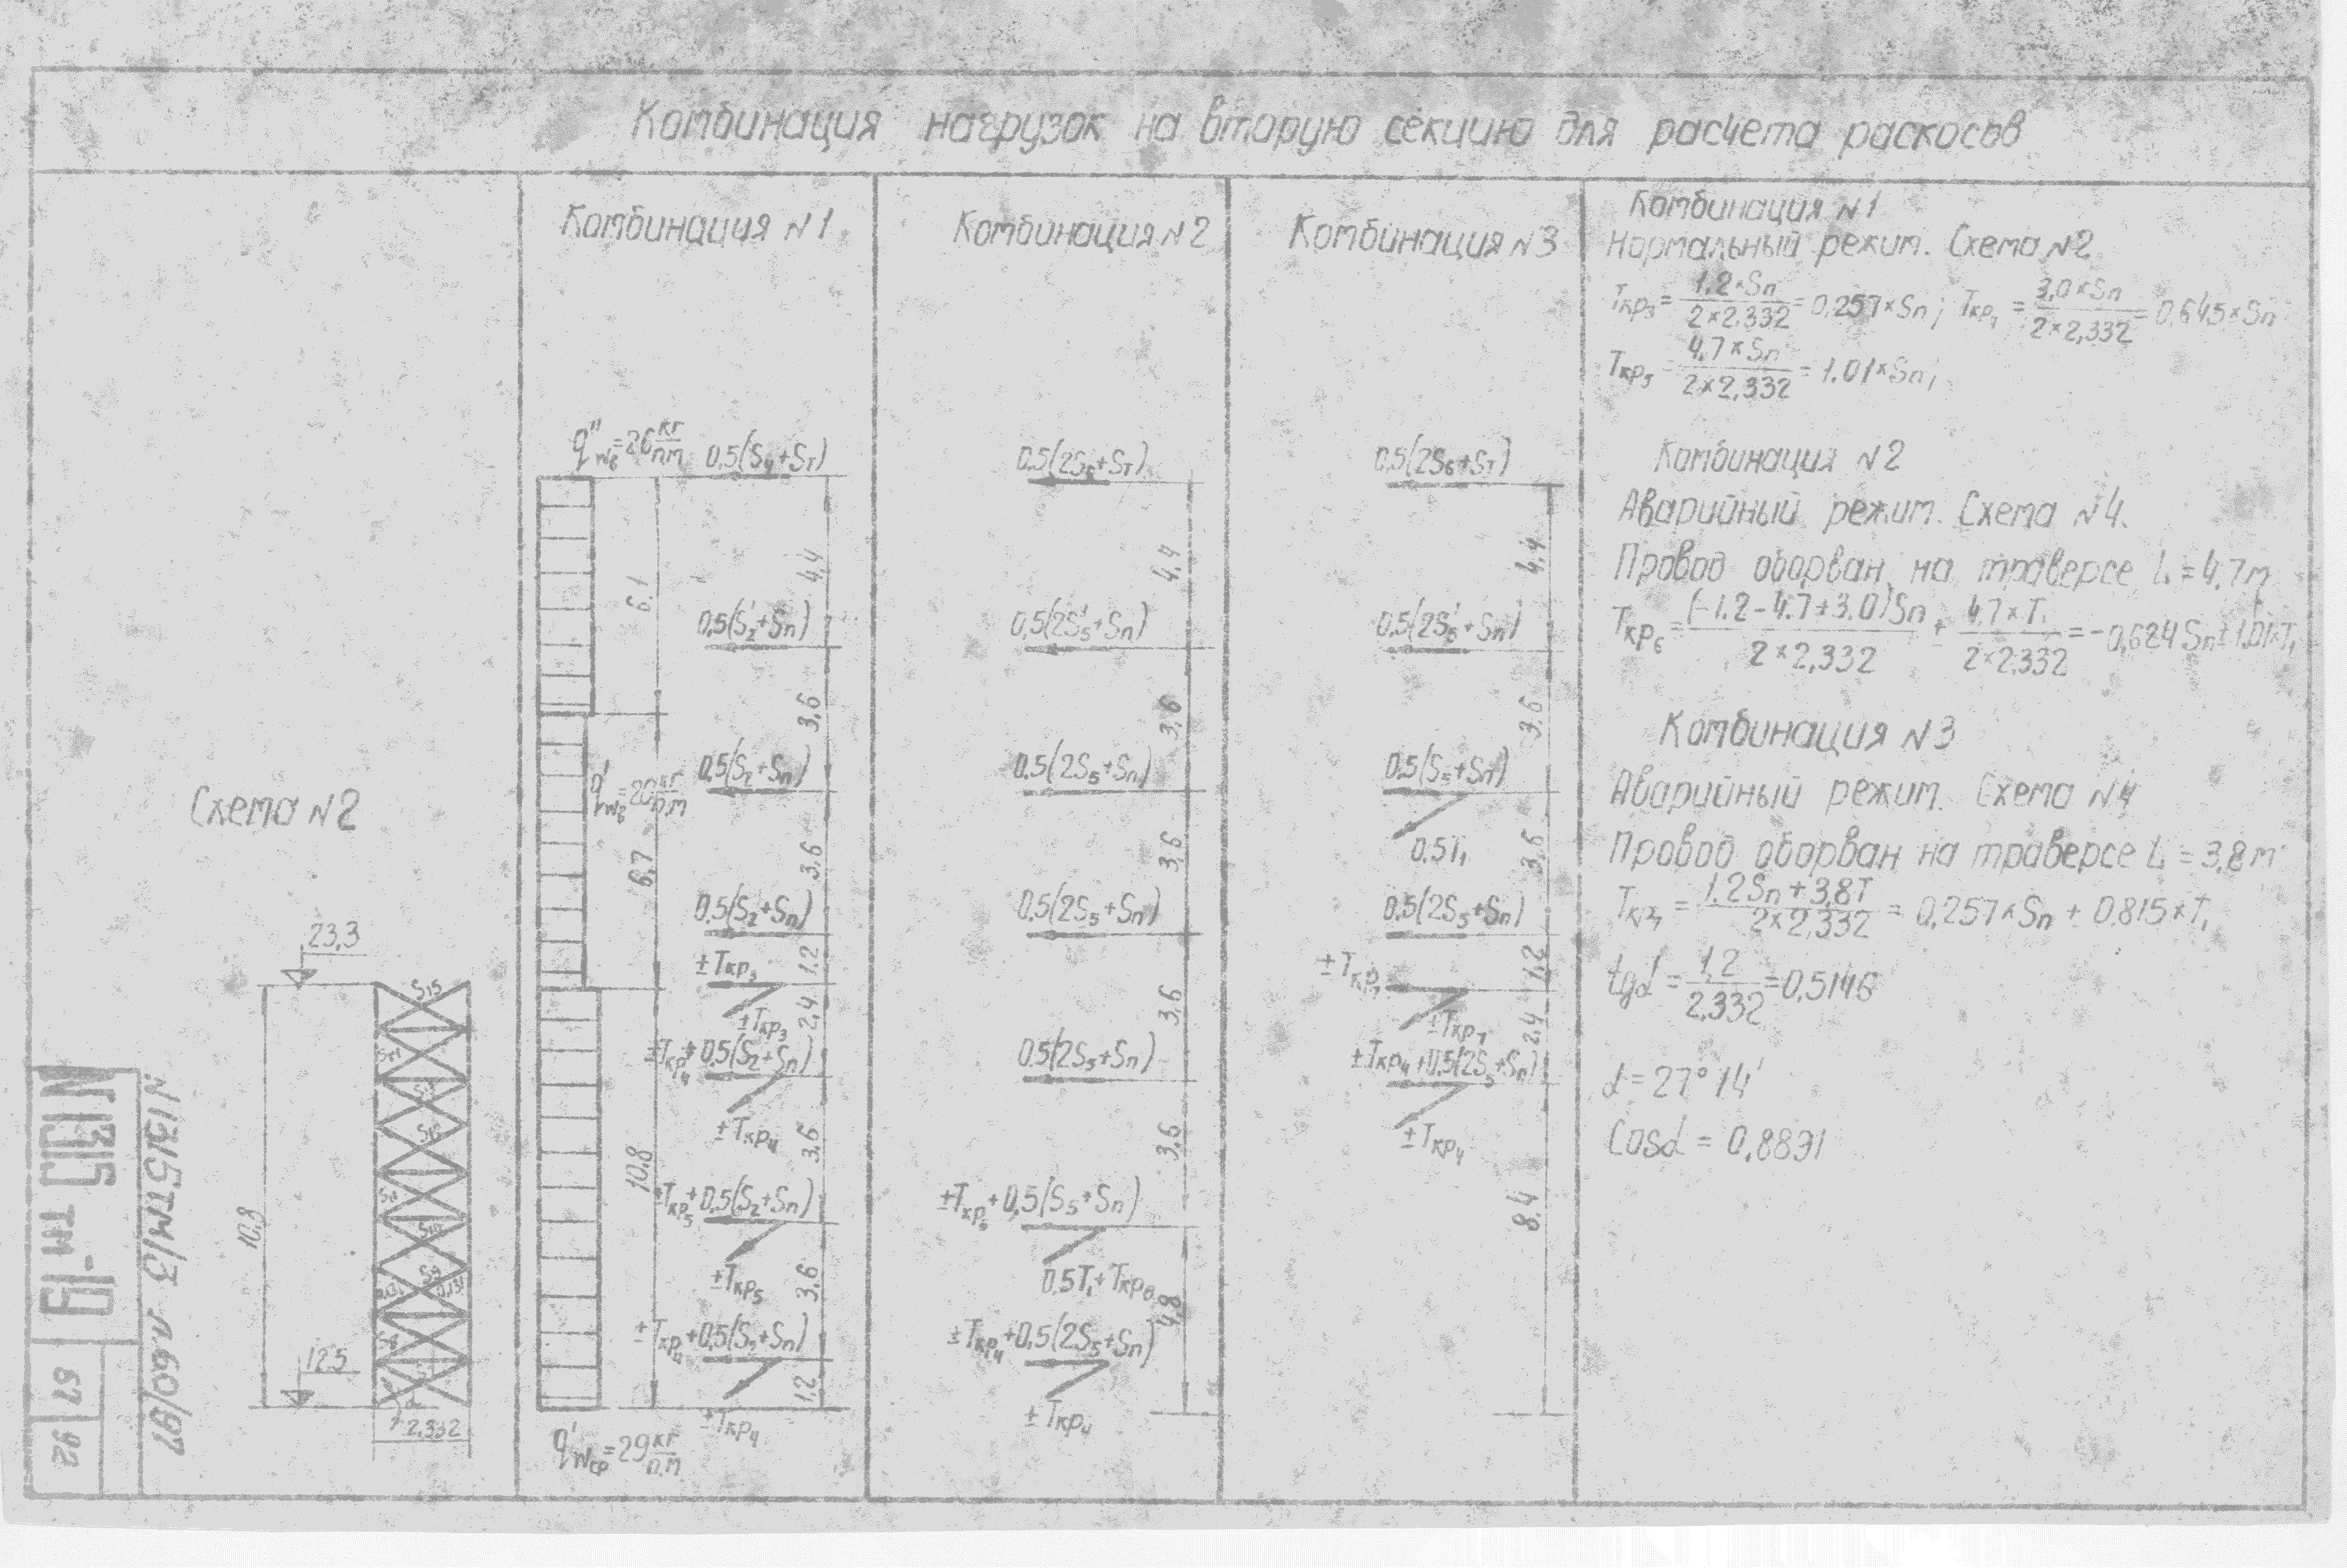 Комбинация нагрузок на вторую секцию для расчета раскосов
Схема N2
23,3
10.8
12.5
2.332
S15
Комбинация N1
q"wв=26 кг/п.м
0,5(S4+Sт)
4,4
6.1
0,5(S2'+Sп)
3,6
0,5(S2+Sп)
q'wв=20 кг/п.м
3,6
6,7
0,5(S2+Sп)
±Ткр3
1.2
±Ткр3
2,4
±Ткр4+0,5(S2+Sп)
±Ткр4
3,6
10.8
±Ткр5+0,5(S2+Sп)
±Ткр5
3,6
±Ткр4+0,5(S2+Sп)
1.2
±Ткр4
q'wср=29 кг/п.м
Комбинация N2
0,5(2S6+Sт)
4.4
0,5(2S5'+Sп)
3,6
0,5(2S5+Sп)
3,6
0,5(2S5+Sп)
3,6
0.5(2S5+Sп)
3,6
±Ткр6+0,5(S5+Sп)
0,5Т1+Ткр6
4,8
±Ткр4+0,5(2S5+Sп)
±Ткр4
Комбинация N3
0.5(2S6+Sт)
4,4
0,5(2S5'+Sп)
3,6
0.5(S5+Sп)
0.5Т1
3,6
0,5(2S5+Sп)
±Ткр7
1,2
±Ткр7
2,4
±Ткр4+0,5(2S5+Sп)
±Ткр4
8,4
Комбинация N1
Нормальный режим. Схема N2
Ткр3=1.2×Sп/2×2,332=0,257×Sп; Ткр4=3,0×Sп/2×2,332=0,645×Sп
Ткр5=4.7×Sп/2×2,332=1.01×Sп;
Комбинация N2
Аварийный режим. Схема N4.
Провод оборван на траверсе L1=4.7м
Ткр6=(-1.2-4.7+3.0)Sп/2×2,332+4.7×Т1/2×2.332=-0,624Sп±1.01×Т1
Комбинация N3
Аварийный режим. Схема N4
Провод оборван на траверсе L1=3,8м
Ткр7=1.2Sп+3,8Т/2×2,332=0,257×Sп+0.815×Т1
tgα=1,2/2.332=0,5146
α=27°14'
Cosα=0,8891
N3115тм/3 л.60/97
67
92